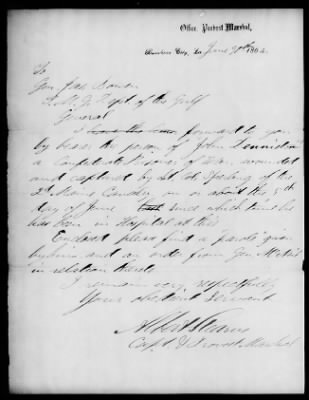 Office, Provost Marshal,
Brashear City, La. June 30th 1864.
To
Gen Jas Bowen
P. M. G. Dept. of the Gulf
General
I have the honor forward to you
by bearer the person of John
a Confederate Prisoner of War, wounded
and captured by Lt Col Spalding of the
2d Maine Cavalry on or about the 9th
day of June since which time he
has been in Hospital at this
Enclosed please find a "parole" given
by him and an order from Gen
in relation thereto
I remain very respectfully
Your obedient Servant
Albert Stearns
Capt. & Provost Marshal